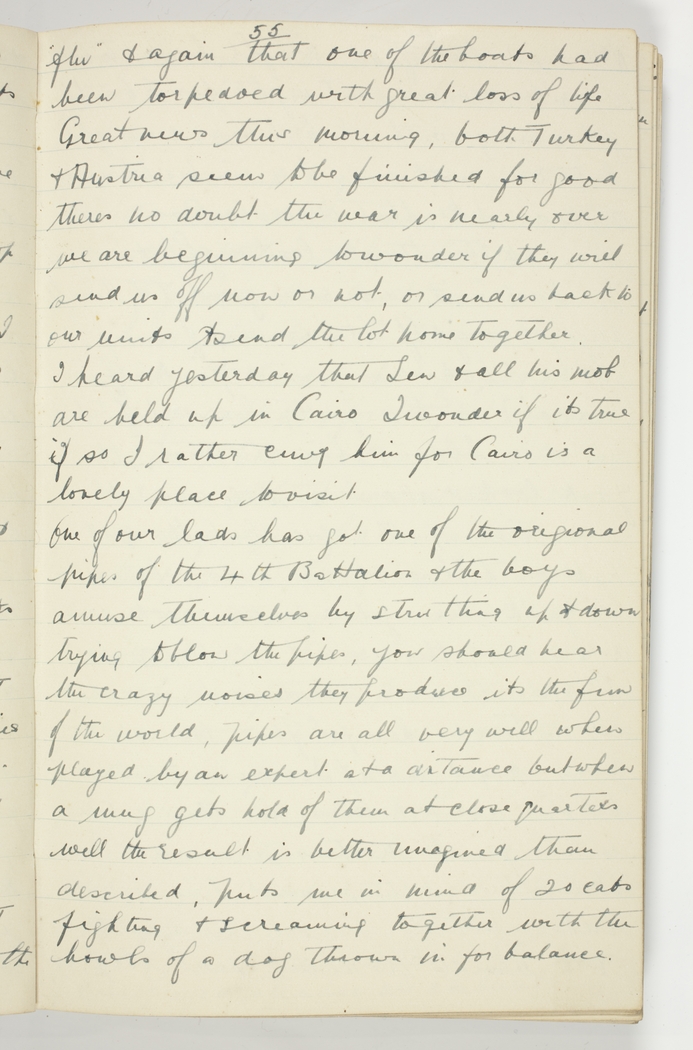 55
"flu" & again that one of the boats had
been torpedoed with great loss of life
Great news this morning, both Turkey
& Austria seem to be finished for good
theres no doubt the war is nearly over
we are beginning to wonder if they will
send us off now or not, or send us back to
our units & send the lot home together.
I heard yesterday that Len & all his mob
are held up in Cairo I wonder if its true,
if so I rather envy him for Cairo is a
lovely place to visit
One of our lads has got one of the origional
pipes of the 4th Battalion & the boys
amuse themselves by strutting up & down
trying to blow the pipes, you should hear
the crazy noises they produce its the fun
of the world, pipes are all very well when
played by an expert at a distance but when
a mug gets hold of them at close quarters
well the result is better imagined than
described, puts me in mind of 20 cats
fighting & screaming together with the
howls of a dog thrown in for balance.
the